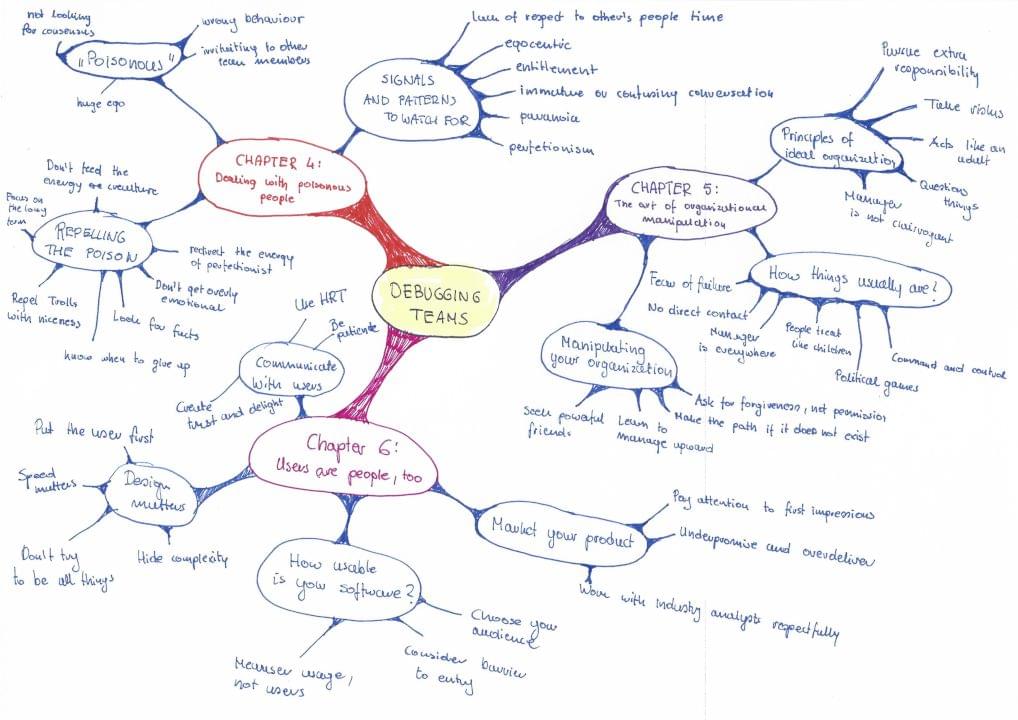 not looking
for consensus
wrong behaviour
irritating to other
team members
"Poisonous"
huge ego
SIGNALS
AND PATTERNS
TO WATCH FOR
lack of respect to other's people time
egocentric
entitlement
immature or confusing conversation
paranoia
perfetionism
CHAPTER 4:
Dealing with poisonous
people
Don't feed the
energy creature
Focus on
the long
term
REPELLING
THE POISON
redirect the energy
of perfectionist
Don't get overly
emotional
Look for facts
Know when to give up
Repel Trolls
with niceness
DEBUGGING
TEAMS
CHAPTER 5:
The art of organizational
manipulation
Principles of
ideal organization
Pursue extra
responsibility
Take risks
Acts like an
adult
Questions
things
Manager
is not clairvoyant
How things usually are?
Fear of failure
No direct contact
Manager
is everywhere
People treat
like children
Political games
Command and control
Manipulating
your organization
Seek powerful
friends
Learn to
manage upward
Make the path if it does not exist
Ask for forgiveness, not permission
Chapter 6:
Users are people, too
Communicate
with users
Use HRT
Be
patiente
Create
trust and delight
Design
matters
Put the user first
Speed
matters
Don't try
to be all things
Hide complexity
How usable
is your software?
Measuer usage,
not users
Consider barrier
to entry
Choose your
audience
Market your product
Pay attention to first impressions
Underpromise and overdeliver
Work with industry analysts respectfully